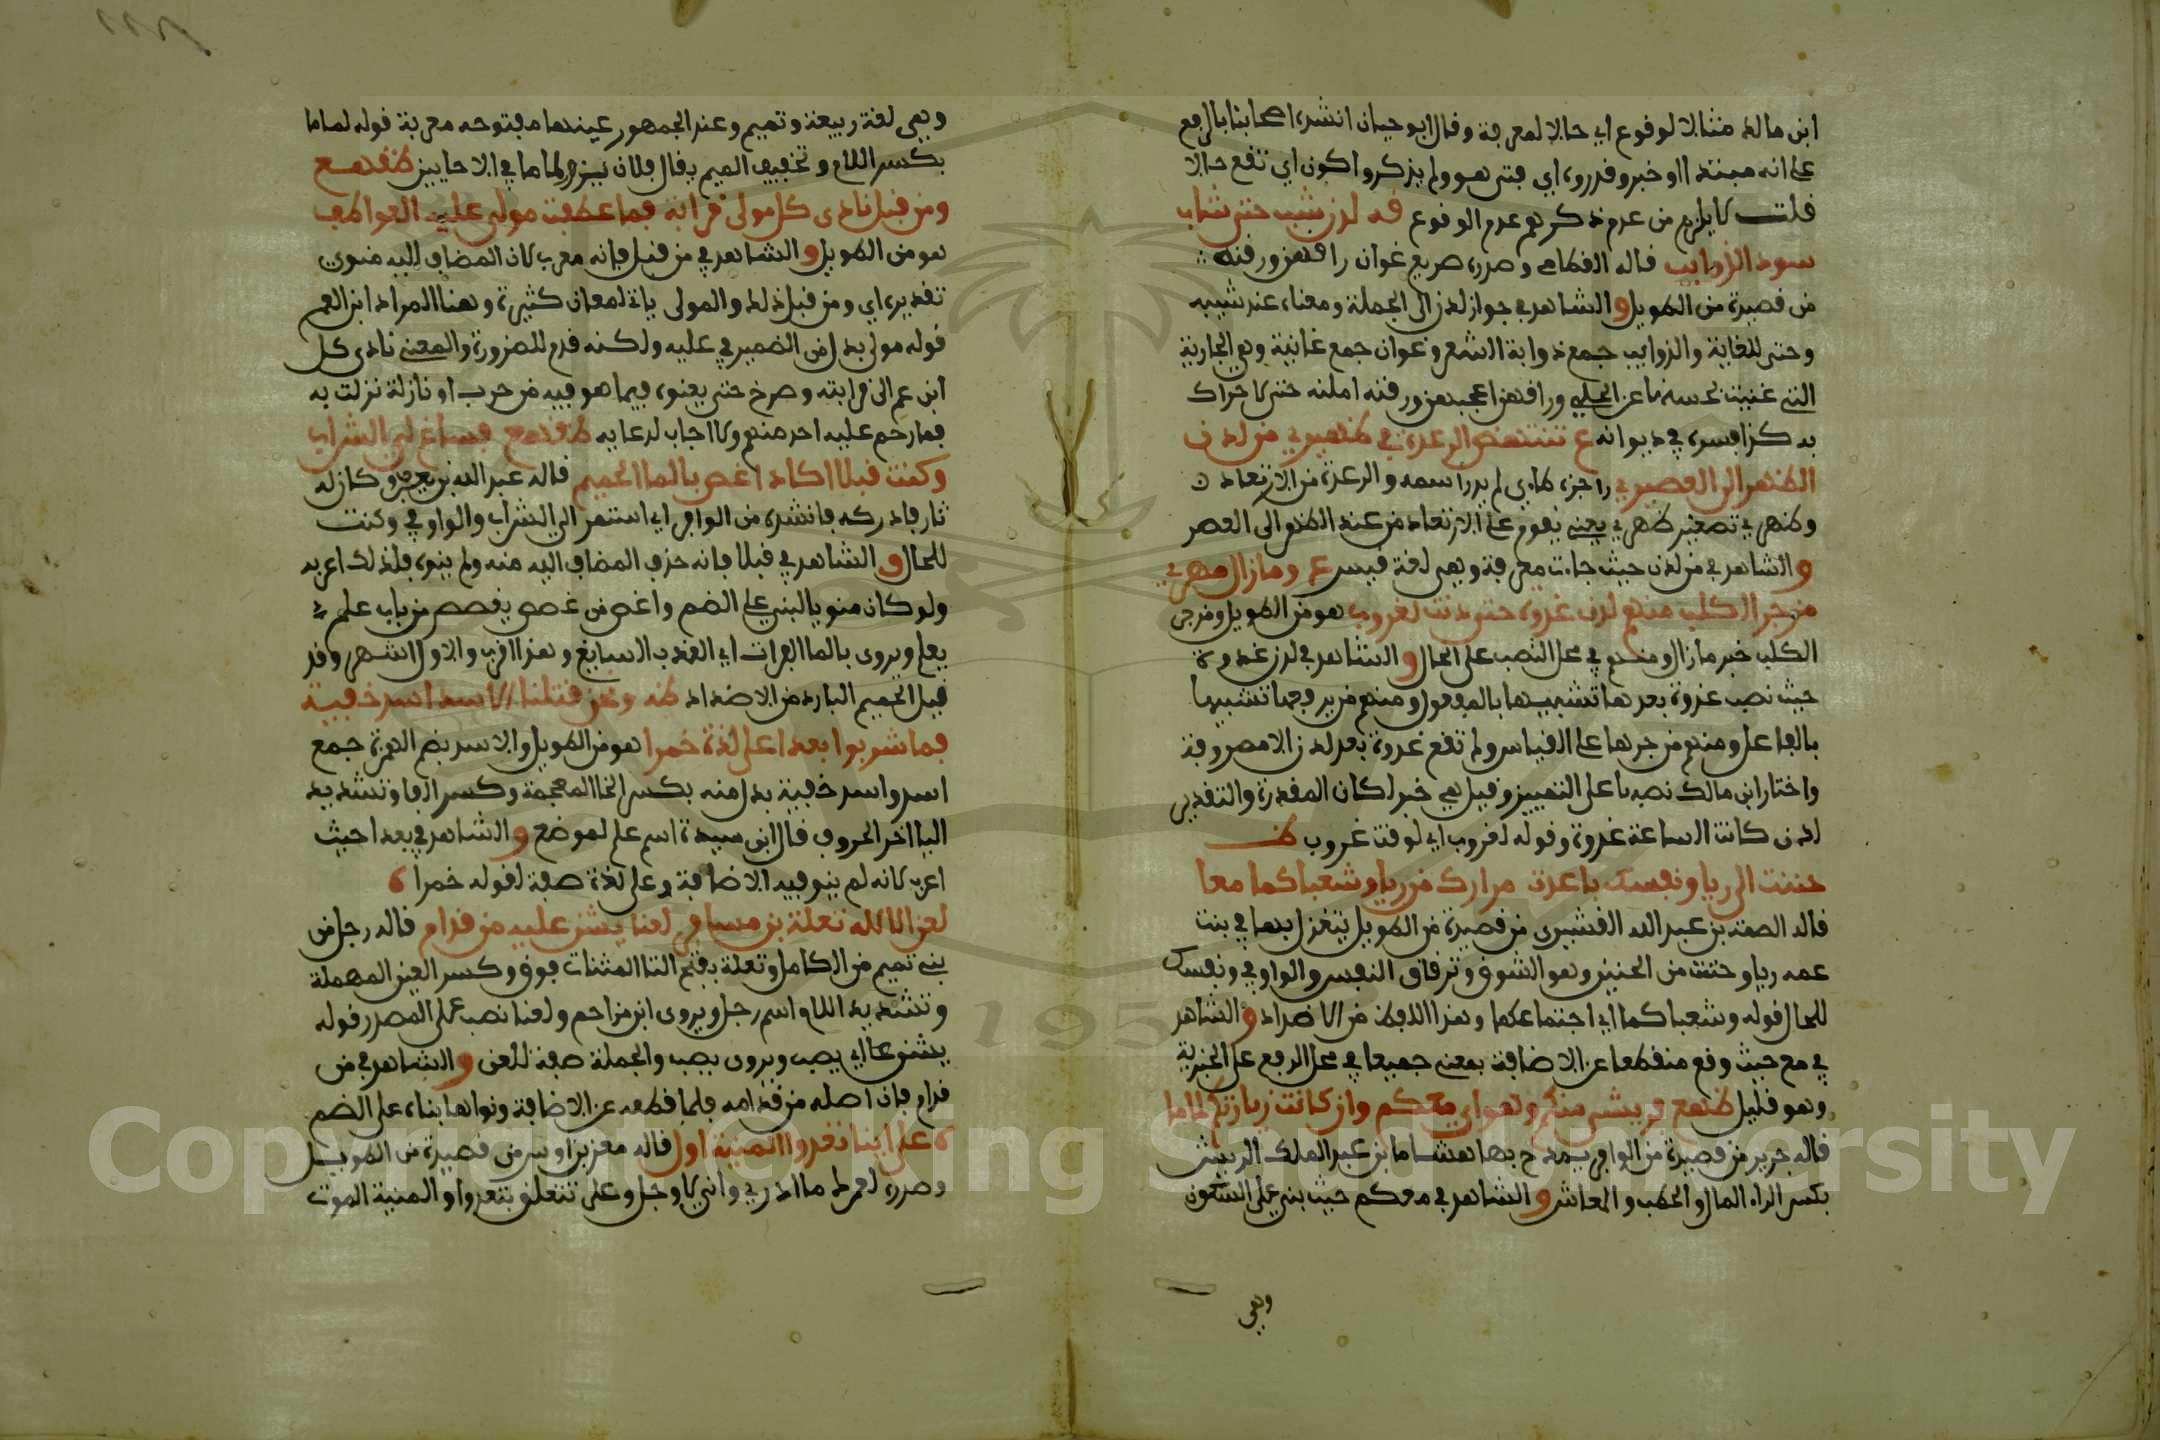 ابن مالك مثالا لوقوع اي حالا لمعرفة وقال ابو حيان انشده اصحابنا بالرفع
على انه مبتدا او خبر وقدروه اي فتى هو ولم يذكروا كون اي تقع حالا
قلت لا يلزم من عدم ذكرهم عدم الوقوع قه لدن شب حتى شاب
سود الذوايب قاله القطامي وصدره صريع غوان راقهن ورقنه
من قصيدة من الطويل والشاهد في جواز لدن الى الجملة ومعناه عند شيبه
وحتى للغاية والذوايب جمع ذوابة الشعر وغوان جمع غانية وهي الجارية
التي غنيت بحسنها عن الحلي وراقهن اعجبهن ورقنه املنه حتى لا حراك
به كذا فسره في ديوانه ع تنتهض الرعدة في ظهيري من لدن
الظهر الى العصير راجزه طاءي لم يدر اسمه والرعدة من الارتعاد
وظهيري تصغير ظهري يعني يقوم على الارتعاد من عند الظهر الى العصر
والشاهد في من لدن حيث جاءت معربة وهي لغة قيس ع وما زال مهري
مزجر الكلب منهم لدن غدوة حتى دنت لغروب هو من الطويل ومزجر
الكلب خبر ما زال ومنهم في محل النصب على الحال والشاهد في لدن غدوة
حيث نصب غدوة بعدها تشبيها بالمفعول ومنهم من يرفعها تشبيها
بالفاعل ومنهم من جرها على القياس ولم تقع غدوة بعد لدن الا مصروفة
واختار ابن مالك نصبها على التمييز وقيل هي خبر لكان المقدرة والتقدير
لدن كانت الساعة غدوة وقوله لغروب اي لوقت غروب ظ
حننت الى ريا ونفسك باعدت مزارك من ريا وشعباكما معا
قاله الصمة بن عبد الله القشيري من قصيدة من الطويل يتغزل بها في بنت
عمه ريا وحننت من الحنين وهو الشوق وتوقان النفس والواو في ونفسك
للحال قوله وشعباكما اي اجتماعكما وهذا اللفظ من الاضداد والشاهد
في مع حيث وقع منقطعا عن الاضافة بمعنى جميعا في محل الرفع على الخبرية
وهو قليل ظقهع فريشي منكم وهواي معكم وان كانت زيارتكم لماما
قاله جرير من قصيدة من الوافر يمدح بها هشاما بن عبد الملك الريش
بكسر الراء المال والخصب والمعاش والشاهد في معكم حيث بني على السكون
وهي
وهي لغة ربيعة وتميم وعند الجمهور عينها مفتوحه معربة قوله لماما
بكسر اللام وتخفيف الميم يقال فلان يزورنا لماما في الاحايين ظقهع
ومن قبل نادى كل مولى قرابة فما عطفت مولى عليه العواطف
هو من الطويل والشاهد في من قبل فانه معرب لان المضاف اليه منوي
تقديره اي ومن قبل ذلك والمولى ياتي لمعان كثيرة وهنا المراد ابن العم
قوله مولى بدل من الضمير في عليه ولكنه قدم للضرورة والمعنى نادى كل
ابن عم الى قرابته وصرخ حتى يعينوه فيما هو فيه من حرب او نازلة نزلت به
فما رحم عليه احد منهم ولا اجاب لدعايه ظقهع فساغ لي الشراب
وكنت قبلا اكاد اغص بالما الحميم قاله عبد الله بن يعرب وكان له
ثار فادركه فانشده من الوافر اي استمر الي الشراب والواو في وكنت
للحال والشاهد في قبلا فانه حذف المضاف اليه منه ولم ينوه فلذلك اعربه
ولو كان منويا لبني على الضم واغص من غصص يغصص من باب علم
يعلم ويروى بالما الفرات اي العذب السابغ وهذا اقرب والاول اشهر وقد
قيل الحميم البارد من الاضداد ظه ونحن قتلنا الاسد اسد خفية
فما شربوا بعدا على لذة خمرا هو من الطويل والاسد بضم الهمزة جمع
اسد واسد خفية بدل منه بكسر الخا المعجمة وكسر الفا وتشديد
اليا اخر الحروف قال ابن سيدة اسم علم لموضع والشاهد في بعدا حيث
اعرب لانه لم ينو فيه الاضافة وعلى لذة صفة لقوله خمرا
لعن الالاه تعلة بن مسافر لعنا يشن عليه من قدام قاله رجل من
بني تميم من الكامل وتعلة بفتح التا المثنات فوق وكسر العين المهملة
وتشديد اللام اسم رجل ويروى ابن مزاحم ولعنا نصب على المصدر قوله
يشن عا اي يصب ويروى يصب والجملة صفة للعن والشاهد في من
قدام فان اصله من قدامه فلما قطعه عن الاضافة ونواها بناه على الضم
على اينا تغدوا المنية اول قاله معن بن اوس من قصيدة من الطويل
وصدره لعمرك ما ادري واني لاوجل وعلى تتعلق بتغدوا والمنية الموت